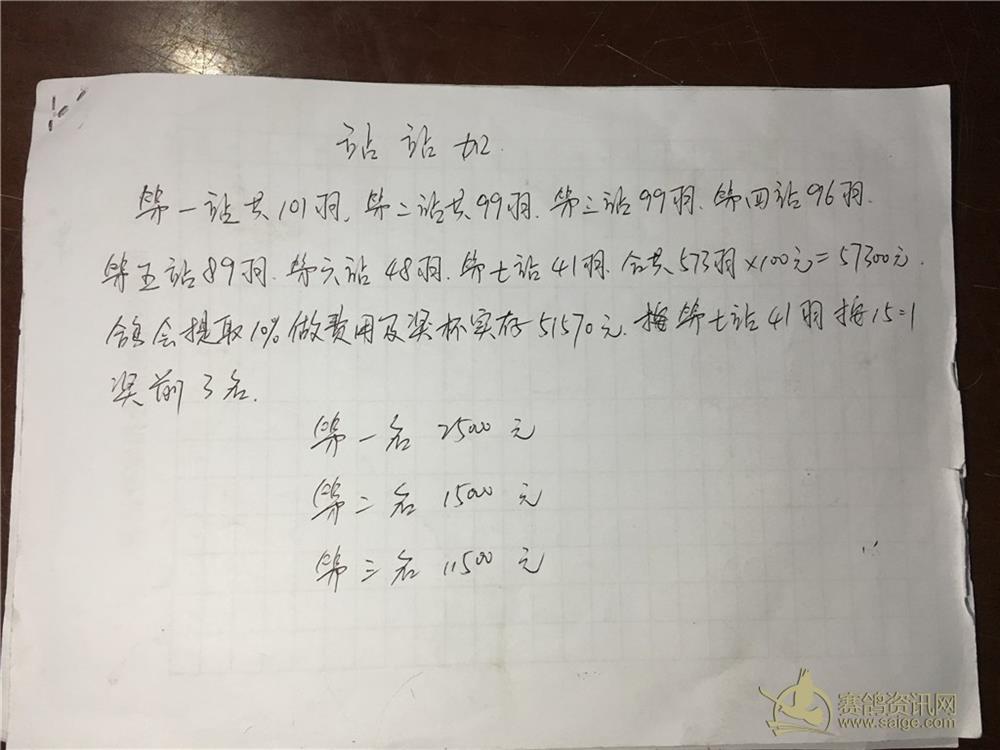 站站加
第一站共101羽、第二站共99羽、第三站99羽、第四站96羽、
第五站89羽、第六站48羽、第七站41羽、合共573羽×100元=57300元、
鸽会提取10%做费用及奖杯实存51570元、按第七站41羽按15=1
奖前3名.
第一名 25000 元
第二名 15000 元
第三名 11500 元
赛鸽资讯网
www.saige.com